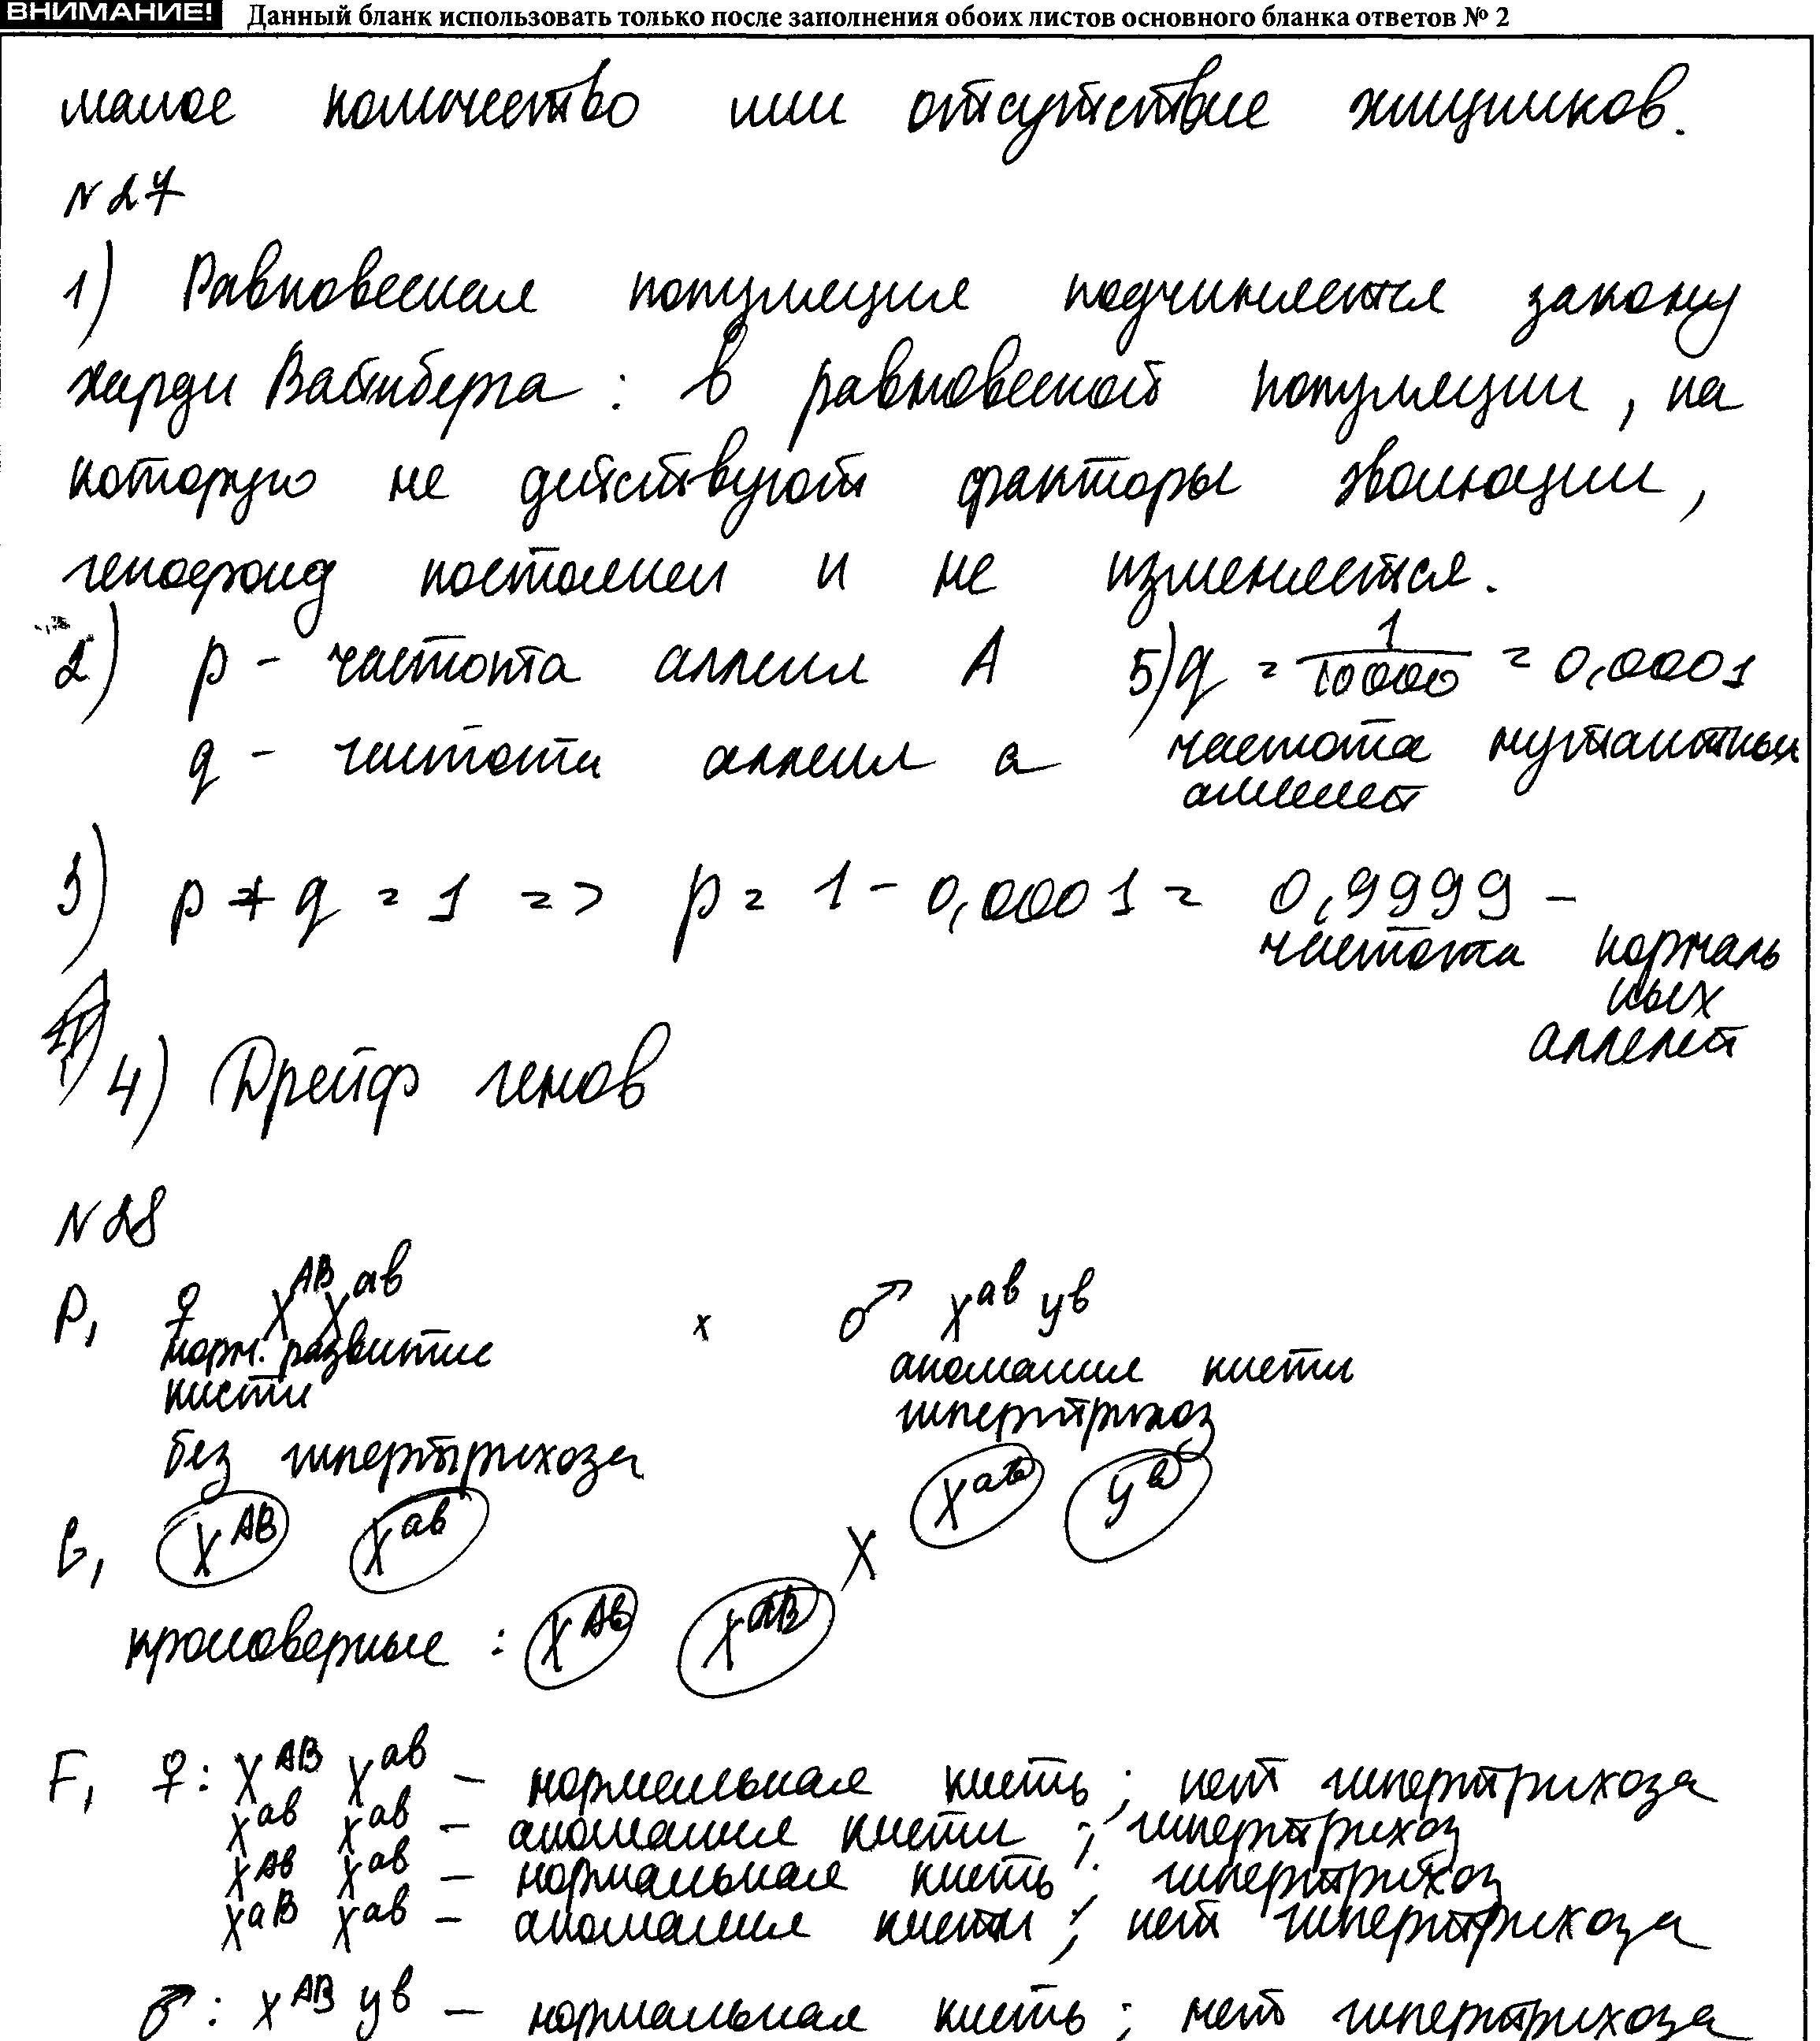 ВНИМАНИЕ! Данный бланк использовать только после заполнения обоих листов основного бланка ответов № 2
малое количество или отсутствие хищников.
N 27
1) Равновесная популяция подчиняется закону
харди Вайнберга: в равновесной популяции, на
которую не действуют факторы эволюции,
генофонд постоянен и не изменяется.
2) p - частота аллеля A 5) q = 1/10000 = 0,0001
q - частота аллеля a частота мутантных
аллелей
3) p + q = 1 => p = 1 - 0,0001 = 0,9999 -
частота нормаль
ных
аллелей
4) Дрейф генов
N 28
P1 ♀ X^AB X^ab x ♂ X^ab y^b
норм. развитие кисти аномалия кисти
без гипертрихоза гипертрихоз
G1 X^AB X^ab X X^ab y^b
кроссоверные: X^Ab X^aB
F1 ♀: X^AB X^ab - нормальная кисть; нет гипертрихоза
X^ab X^ab - аномалия кисти; гипертрихоз
X^Ab X^ab - нормальная кисть; гипертрихоз
X^aB X^ab - аномалия кисти; нет гипертрихоза
♂: X^AB y^b - нормальная кисть; нет гипертрихоза